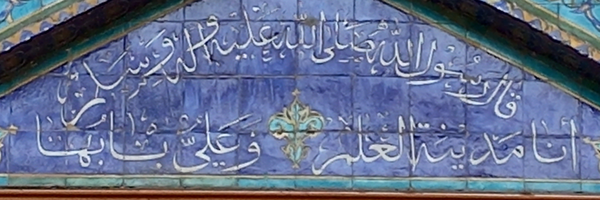 قال رسول الله صلی الله علیه و اله و سلم
انا مدینة العلم و علی بابها